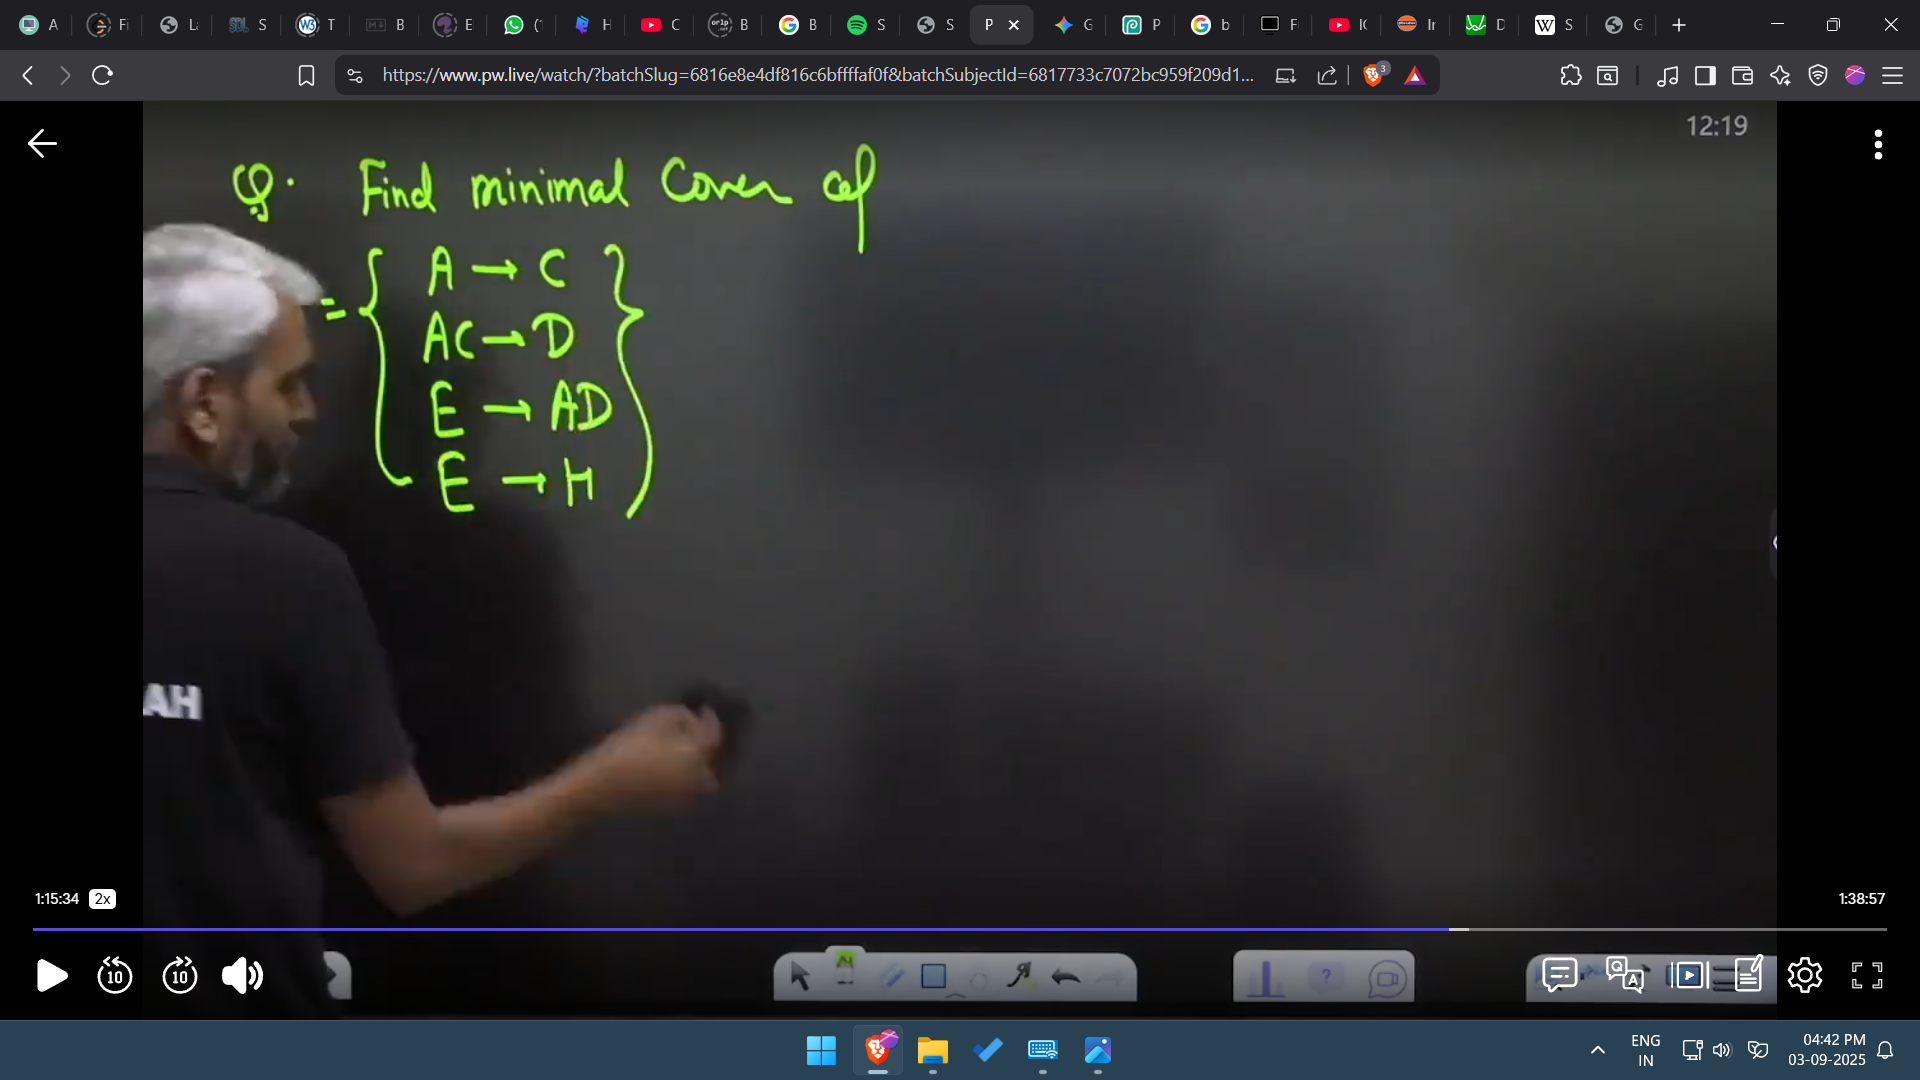 A
Fi
La
SQL S
W3 T
B
E
(1
H
C
orip .net B
G B
S
S
P
G
P
G b
F
IC
Ir
D
W S
G
https://www.pw.live/watch/?batchSlug=6816e8e4df816c6bffffaf0f&batchSubjectId=6817733c7072bc959f209d1...
3
12:19
Q. Find minimal Cover of
= { A → C }
AC → D
E → AD
E → H
AH
1:15:34 2x
1:38:57
10 10
?
Q A
ENG
IN
04:42 PM
03-09-2025